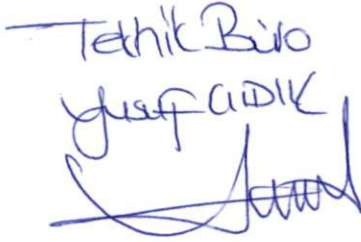 Teknik Büro
Yusuf CIDIK